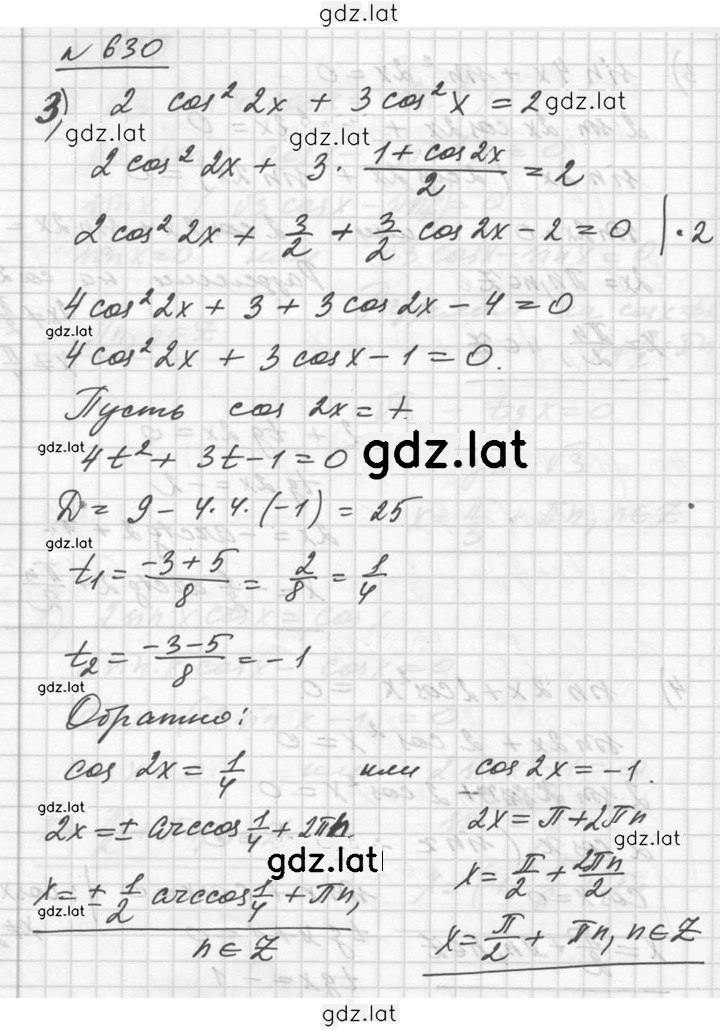 gdz.lat
№ 630
3) 2 cos² 2x + 3 cos² x = 2
gdz.lat
gdz.lat
gdz.lat
2 cos² 2x + 3 · (1 + cos 2x)/2 = 2
2 cos² 2x + 3/2 + 3/2 cos 2x − 2 = 0 | · 2
gdz.lat
4 cos² 2x + 3 + 3 cos 2x − 4 = 0
gdz.lat
4 cos² 2x + 3 cos x − 1 = 0.
Пусть cos 2x = t
gdz.lat
gdz.lat
4t² + 3t − 1 = 0
D = 9 − 4·4·(−1) = 25
gdz.lat
t₁ = (−3 + 5)/8 = 2/8 = 1/4
t₂ = (−3 − 5)/8 = −1
gdz.lat
Обратно:
cos 2x = 1/4 или cos 2x = −1.
gdz.lat
2x = ± arccos 1/4 + 2πn. 2x = π + 2πn
gdz.lat
gdz.lat
x = π/2 + 2πn/2
x = ± 1/2 arccos 1/4 + πn,
gdz.lat
n ∈ Z
x = π/2 + πn, n ∈ Z
gdz.lat